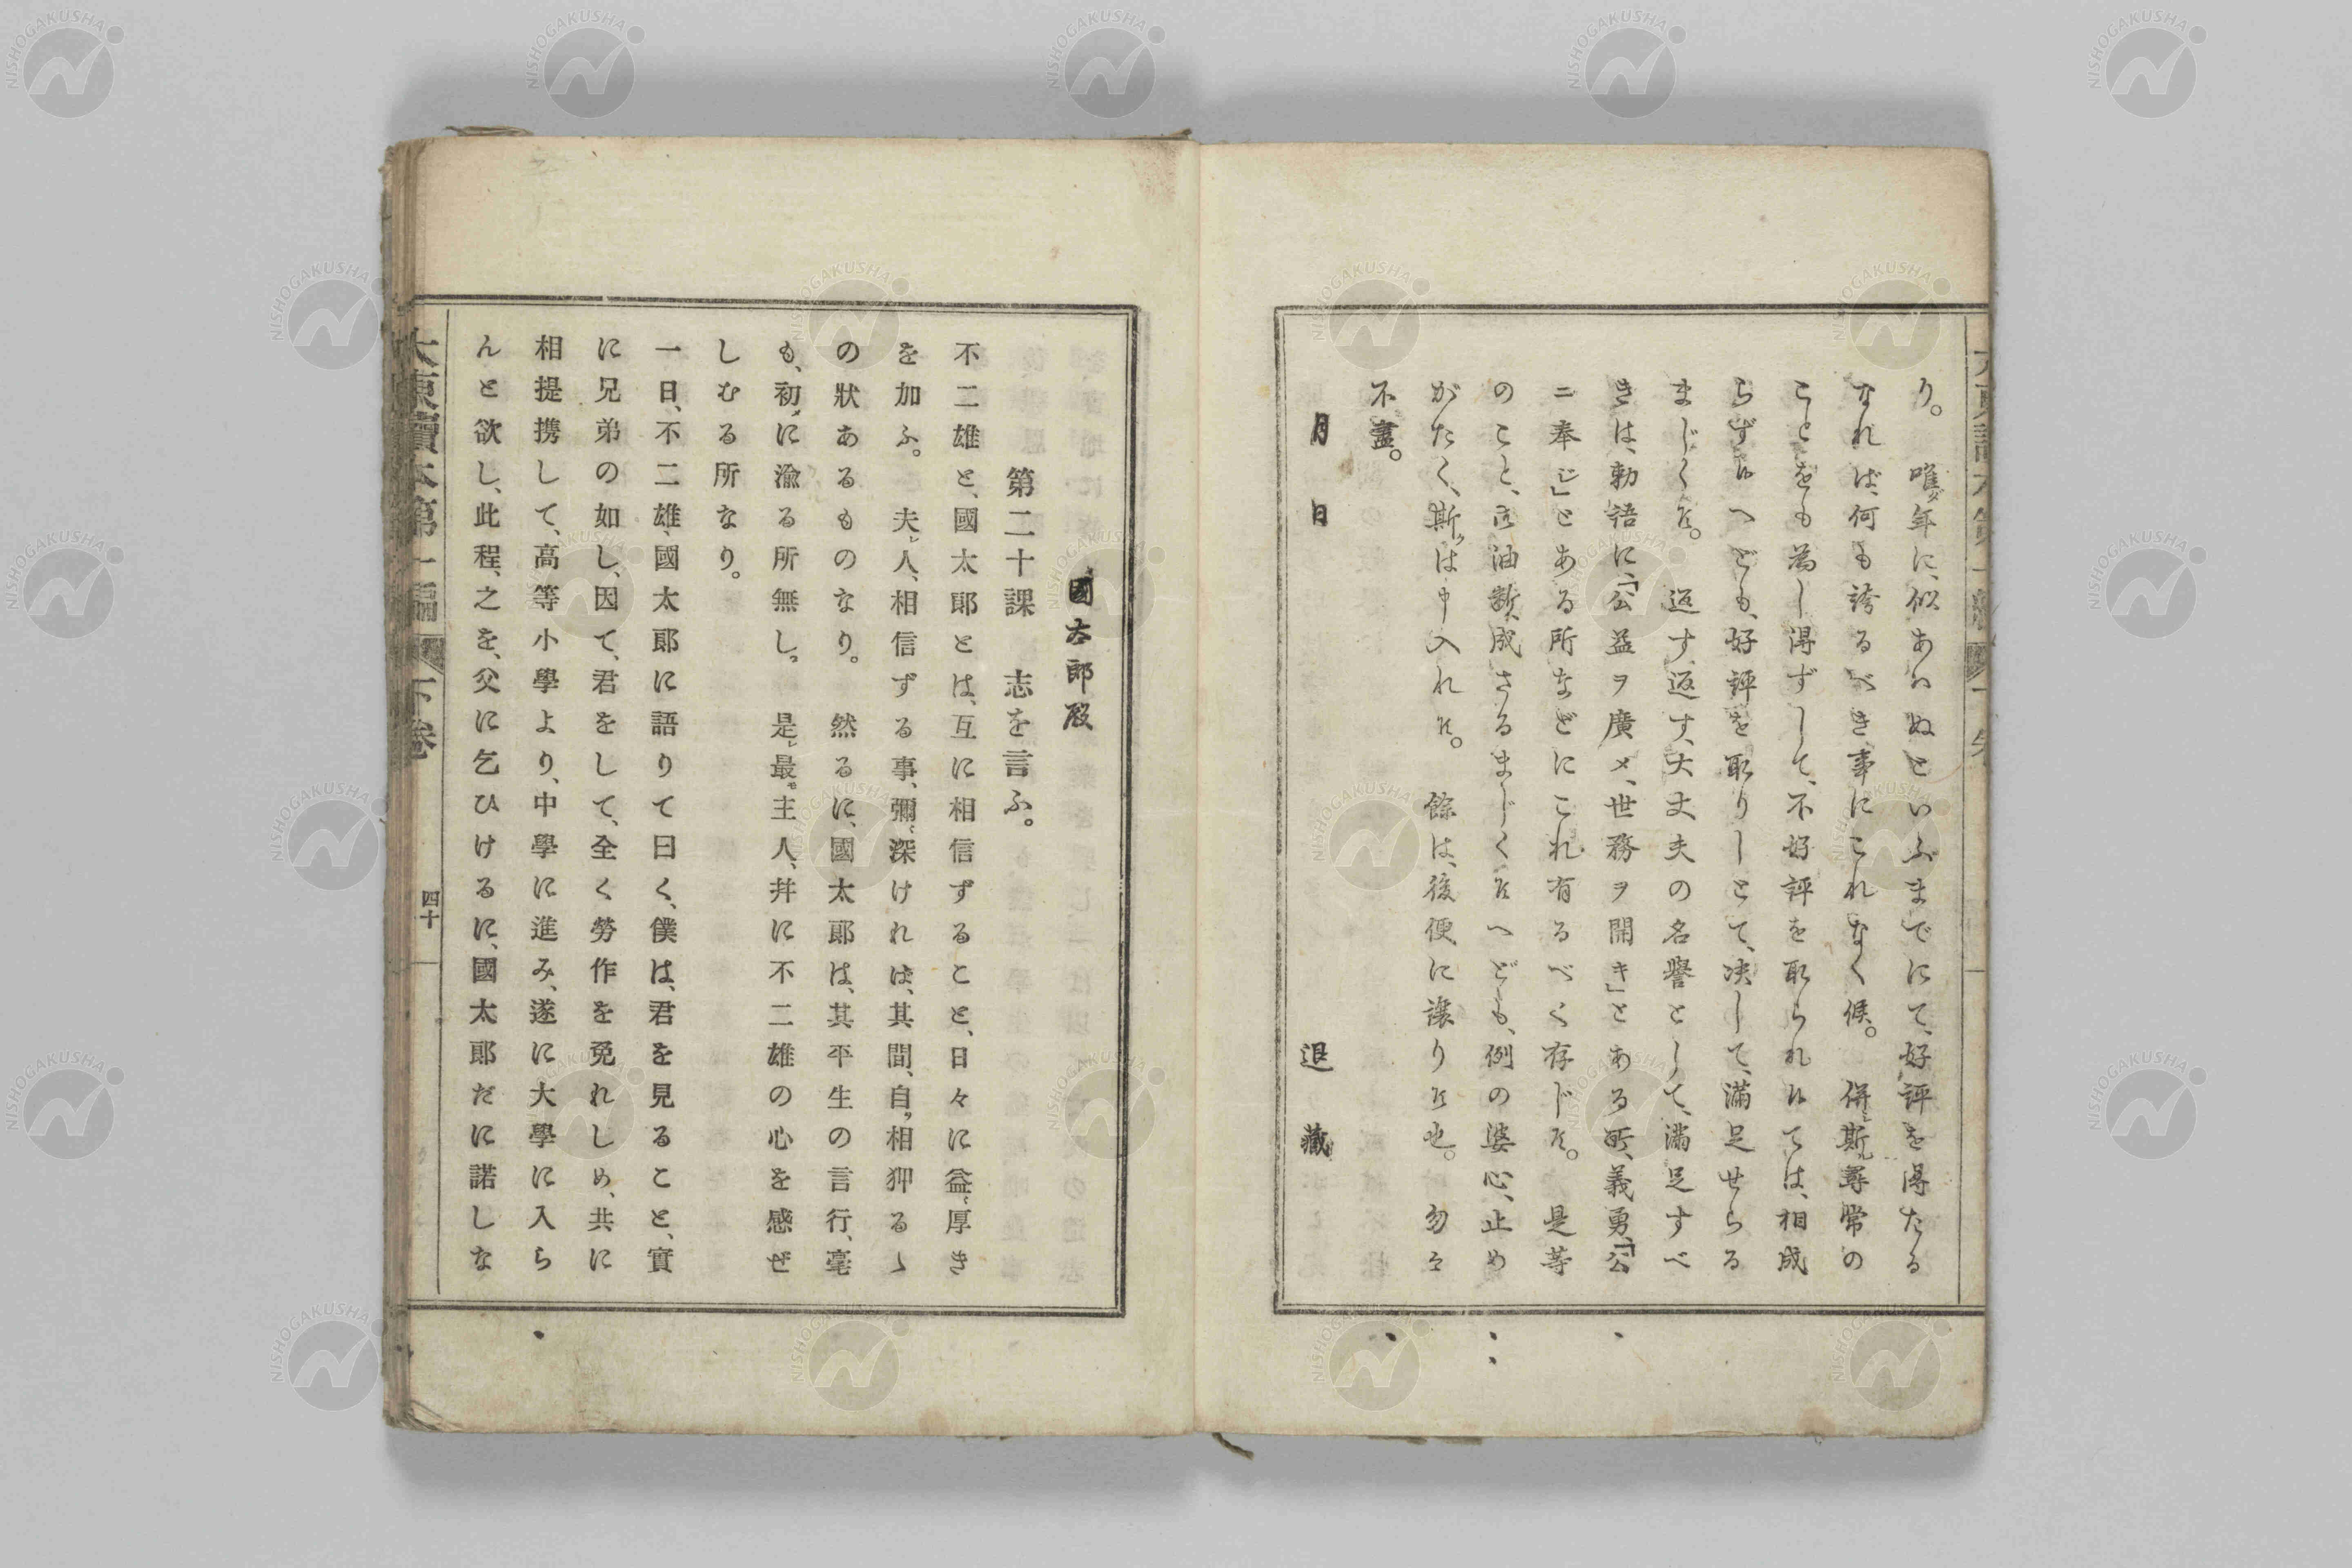 り。唯ダ年に、似あハぬといふまでにて、好評を得たる
なれば、何も誇るべき事にこれなく候。併シ斯ル尋常の
ことをも為し得ずして、不好評を取られ候ては、相成
らず候へども、好評を取りしとて、决して、滿足せらる
まじく候。返す、返す、大丈夫の名譽として、滿足すべ
きは、勅語に、「公益ヲ廣メ、世務ヲ開キ」とある所、義勇、「公
ニ奉ジ」とある所などにこれ有るべく存じ候。是等
のこと、御油斷、成さるまじく候へども、例の婆心、止め
がたく、斯クは申入れ候。餘は、後便に讓り候也。勿々
不盡。
月日
退藏
國太郎殿
第二十課 志を言ふ。
不二雄と、國太郎とは、互に相信ずること、日々に益〻厚き
を加ふ。夫レ人、相信ずる事、彌〻深ければ、其間、自ラ相狎るゝ
の狀あるものなり。然るに、國太郎は、其平生の言行、毫
も、初メに渝る所無し。是レ最モ主人、幷に不二雄の心を感ぜ
しむる所なり。
一日、不二雄、國太郎に語りて曰く、僕は、君を見ること、實
に兄弟の如し、因て、君をして、全く勞作を免れしめ、共に
相提携して、高等小學より、中學に進み、遂に大學に入ら
んと欲し、此程、之を、父に乞ひけるに、國太郎だに諾しな
大東讀本第一編 下卷
四十